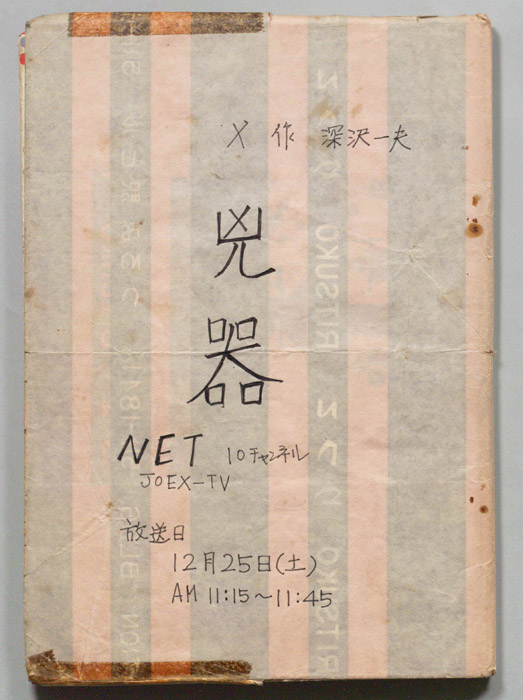 作 深沢一夫
兇器
NET 10チャンネル
JOEX-TV
放送日
12月25日(土)
AM 11:15~11:45
RITSUKO
RITSUKO